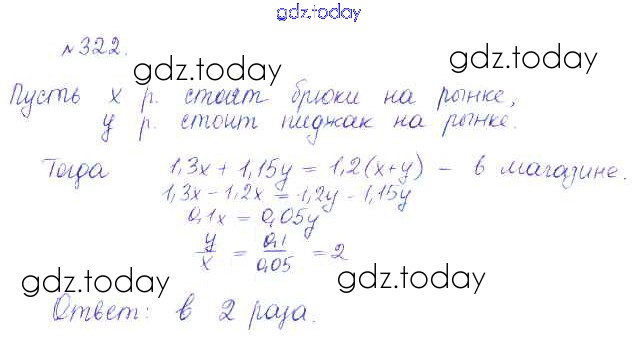 gdz.today
№322.
gdz.today gdz.today
Пусть x р. стоят брюки на рынке,
y р. стоит пиджак на рынке.
Тогда 1,3x + 1,15y = 1,2(x+y) – в магазине.
1,3x – 1,2x = 1,2y – 1,15y
0,1x = 0,05y
y/x = 0,1/0,05 = 2
gdz.today gdz.today
Ответ: в 2 раза.